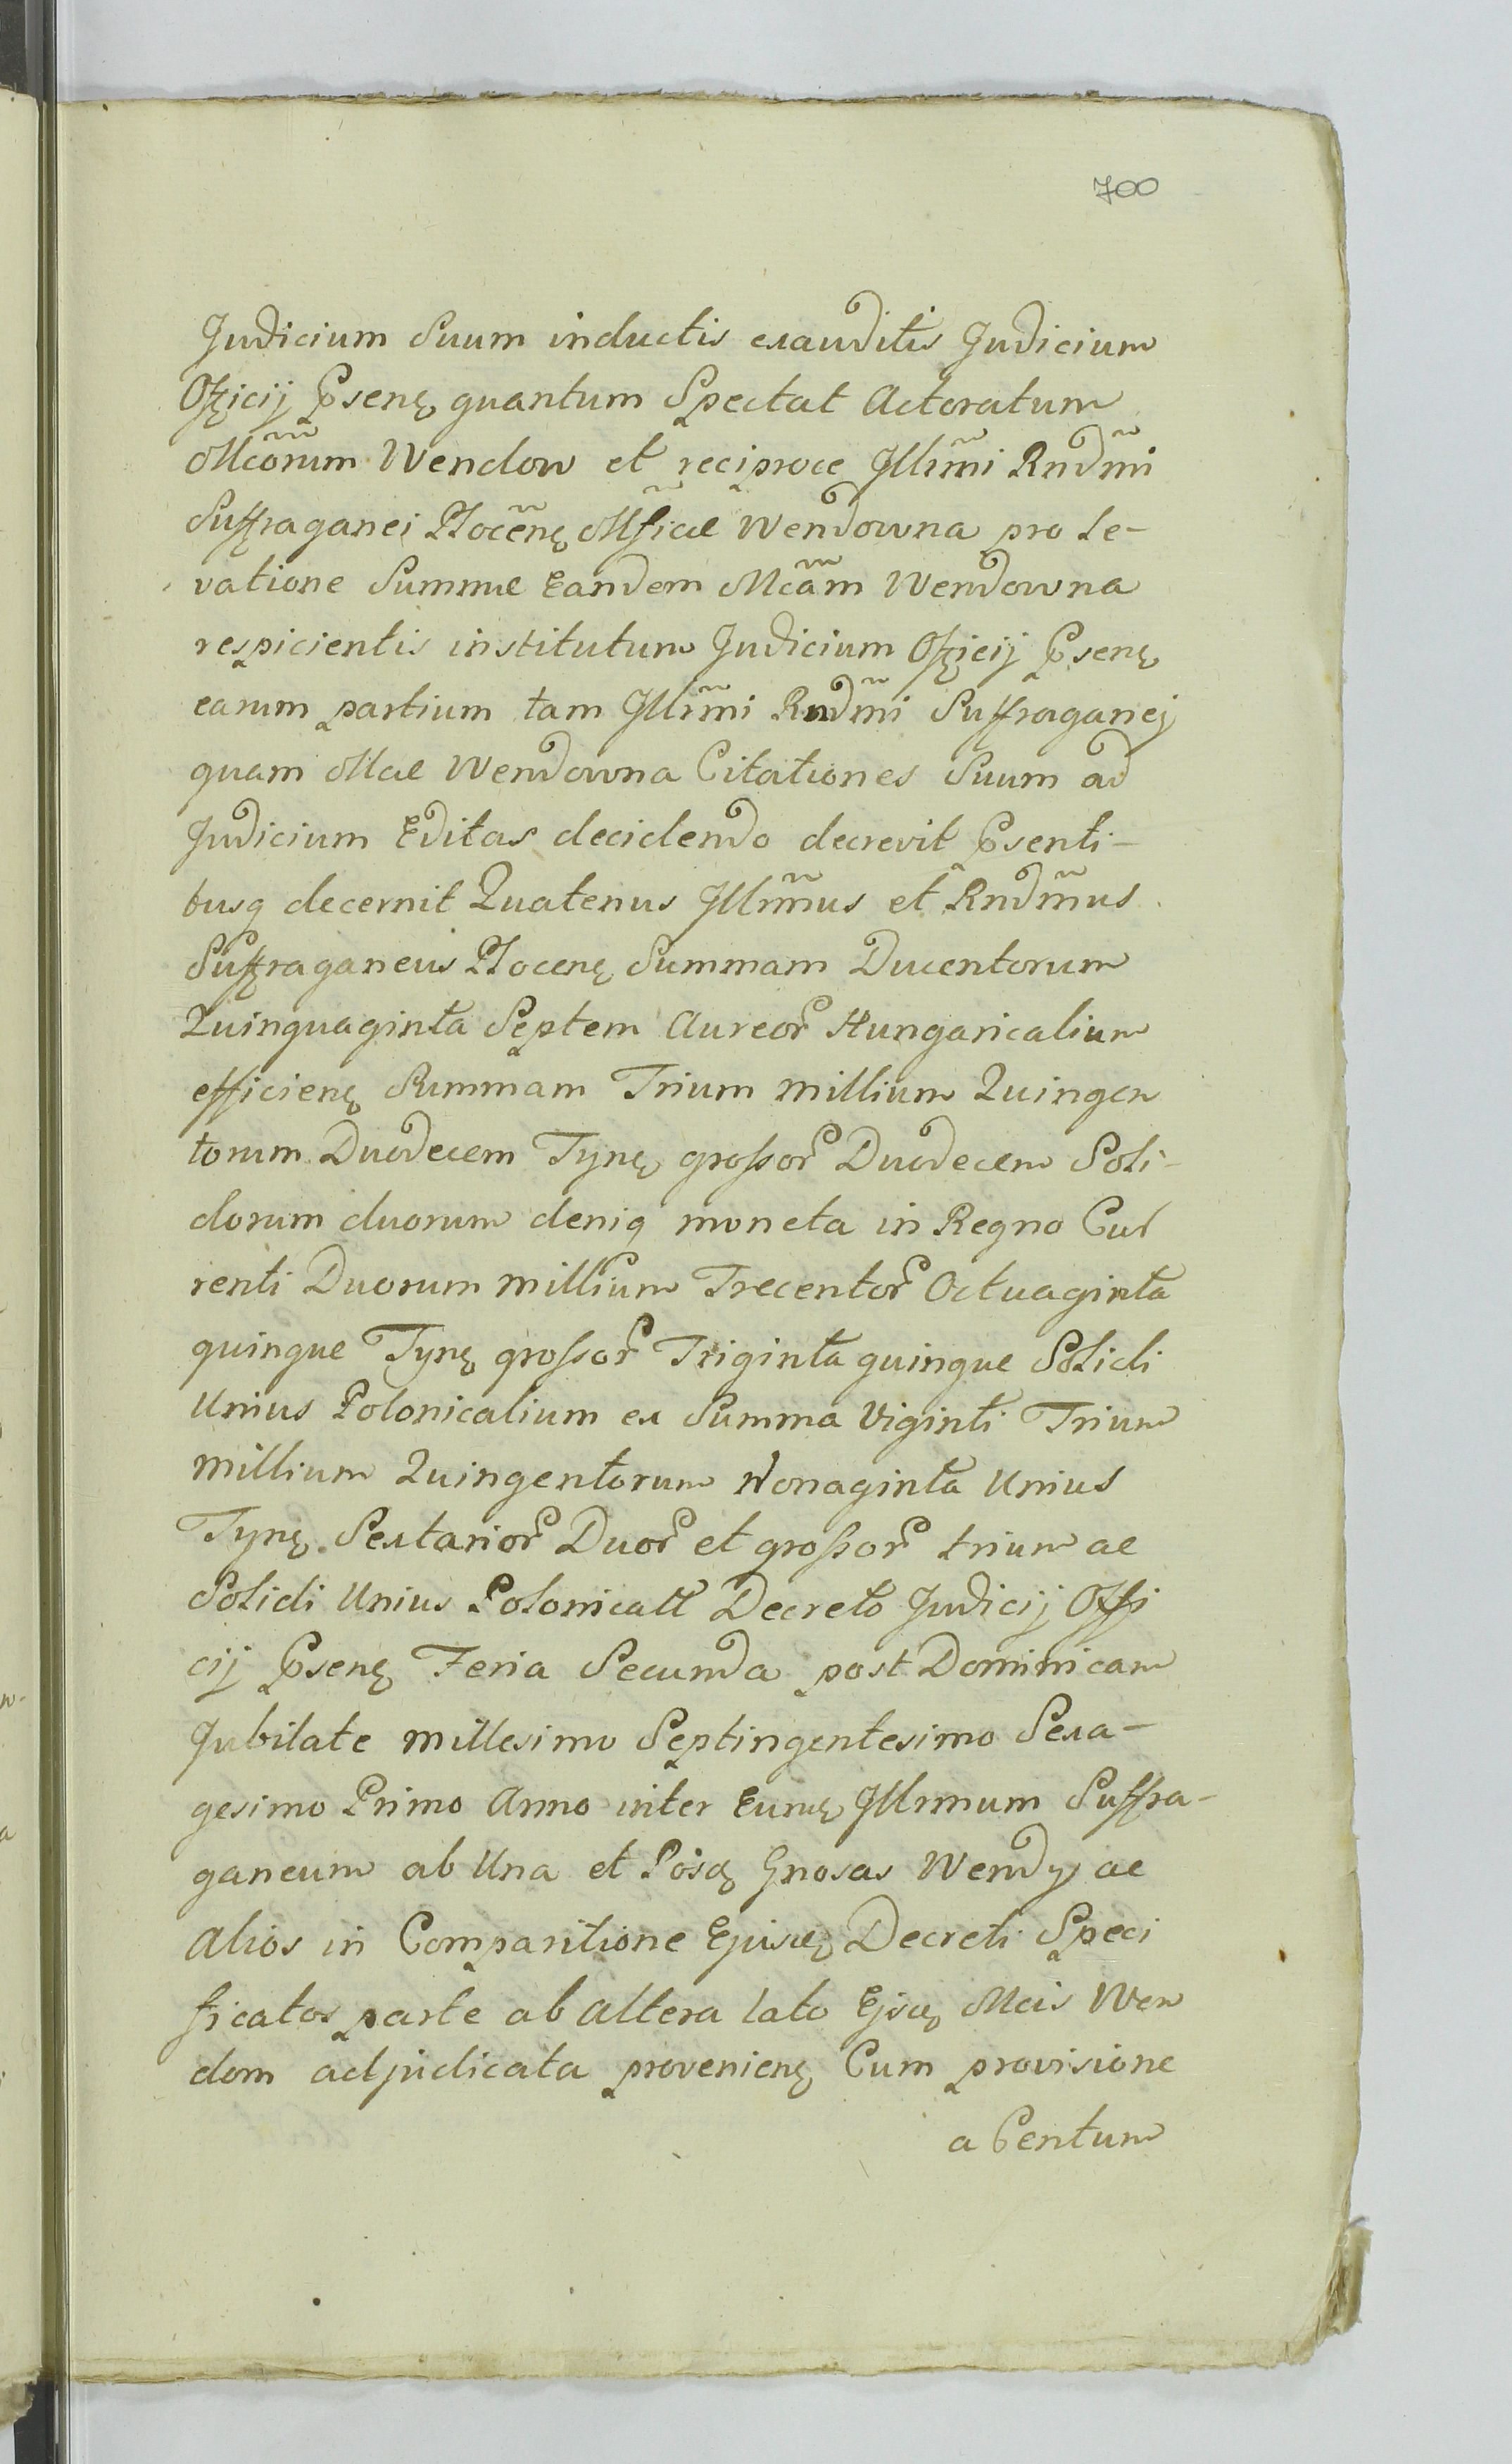 700
Judicium Suum inductis exauditis Judicium
Officij Psenę quantum Spectat Actoratum
Mcõrum Wendow et reciproce Illrm̃i Rndm̃i
Suffraganei Płocẽnę Mficæ Wendowna pro le-
vatione Summæ Eandem Mcãm Wendowna
respicientis institutum Judicium Officij Psenę
earum partium tam Illrm̃i Rndm̃i Suffraganej
quam Mae Wendowna Citationes Suum ad
Judicium Editas decidendo decrevit Psenti-
busq decernit Quatenus Illrm̃us et Rndm̃us
Suffraganeus Płocenę Summam Ducentorum
Quinquaginta Septem Aureor Hungaricalium
efficienę Summam Trium millium Quingen
torum Duodecem Tynę grossor Duodecem Soli-
dorum duorum deniq moneta in Regno Cur
renti Duorum millium Trecentor Octuaginta
quinque Tynę grossor Triginta quinque Solidi
Unius Polonicalium ex Summa Viginti Trium
millium Quingentorum Nonaginta Unius
Tynę Sextarior Duor et grossor trium ac
Solidi Unius Polonicall Decreto Judicij Offi
cij Psenę Feria Secunda post Dominicam
Jubilate millesimo Septingentesimo Sexa-
gesimo Primo Anno inter Eunę Illrmum Suffra-
ganeum ab Una et Gnosas Wendy ac
Alios in Comparitione Ejusę Decreti Speci
ficatos parte ab altera lato Ejsę Mcis Wen
dom adjudicata provenienę Cum provisione
a Centum